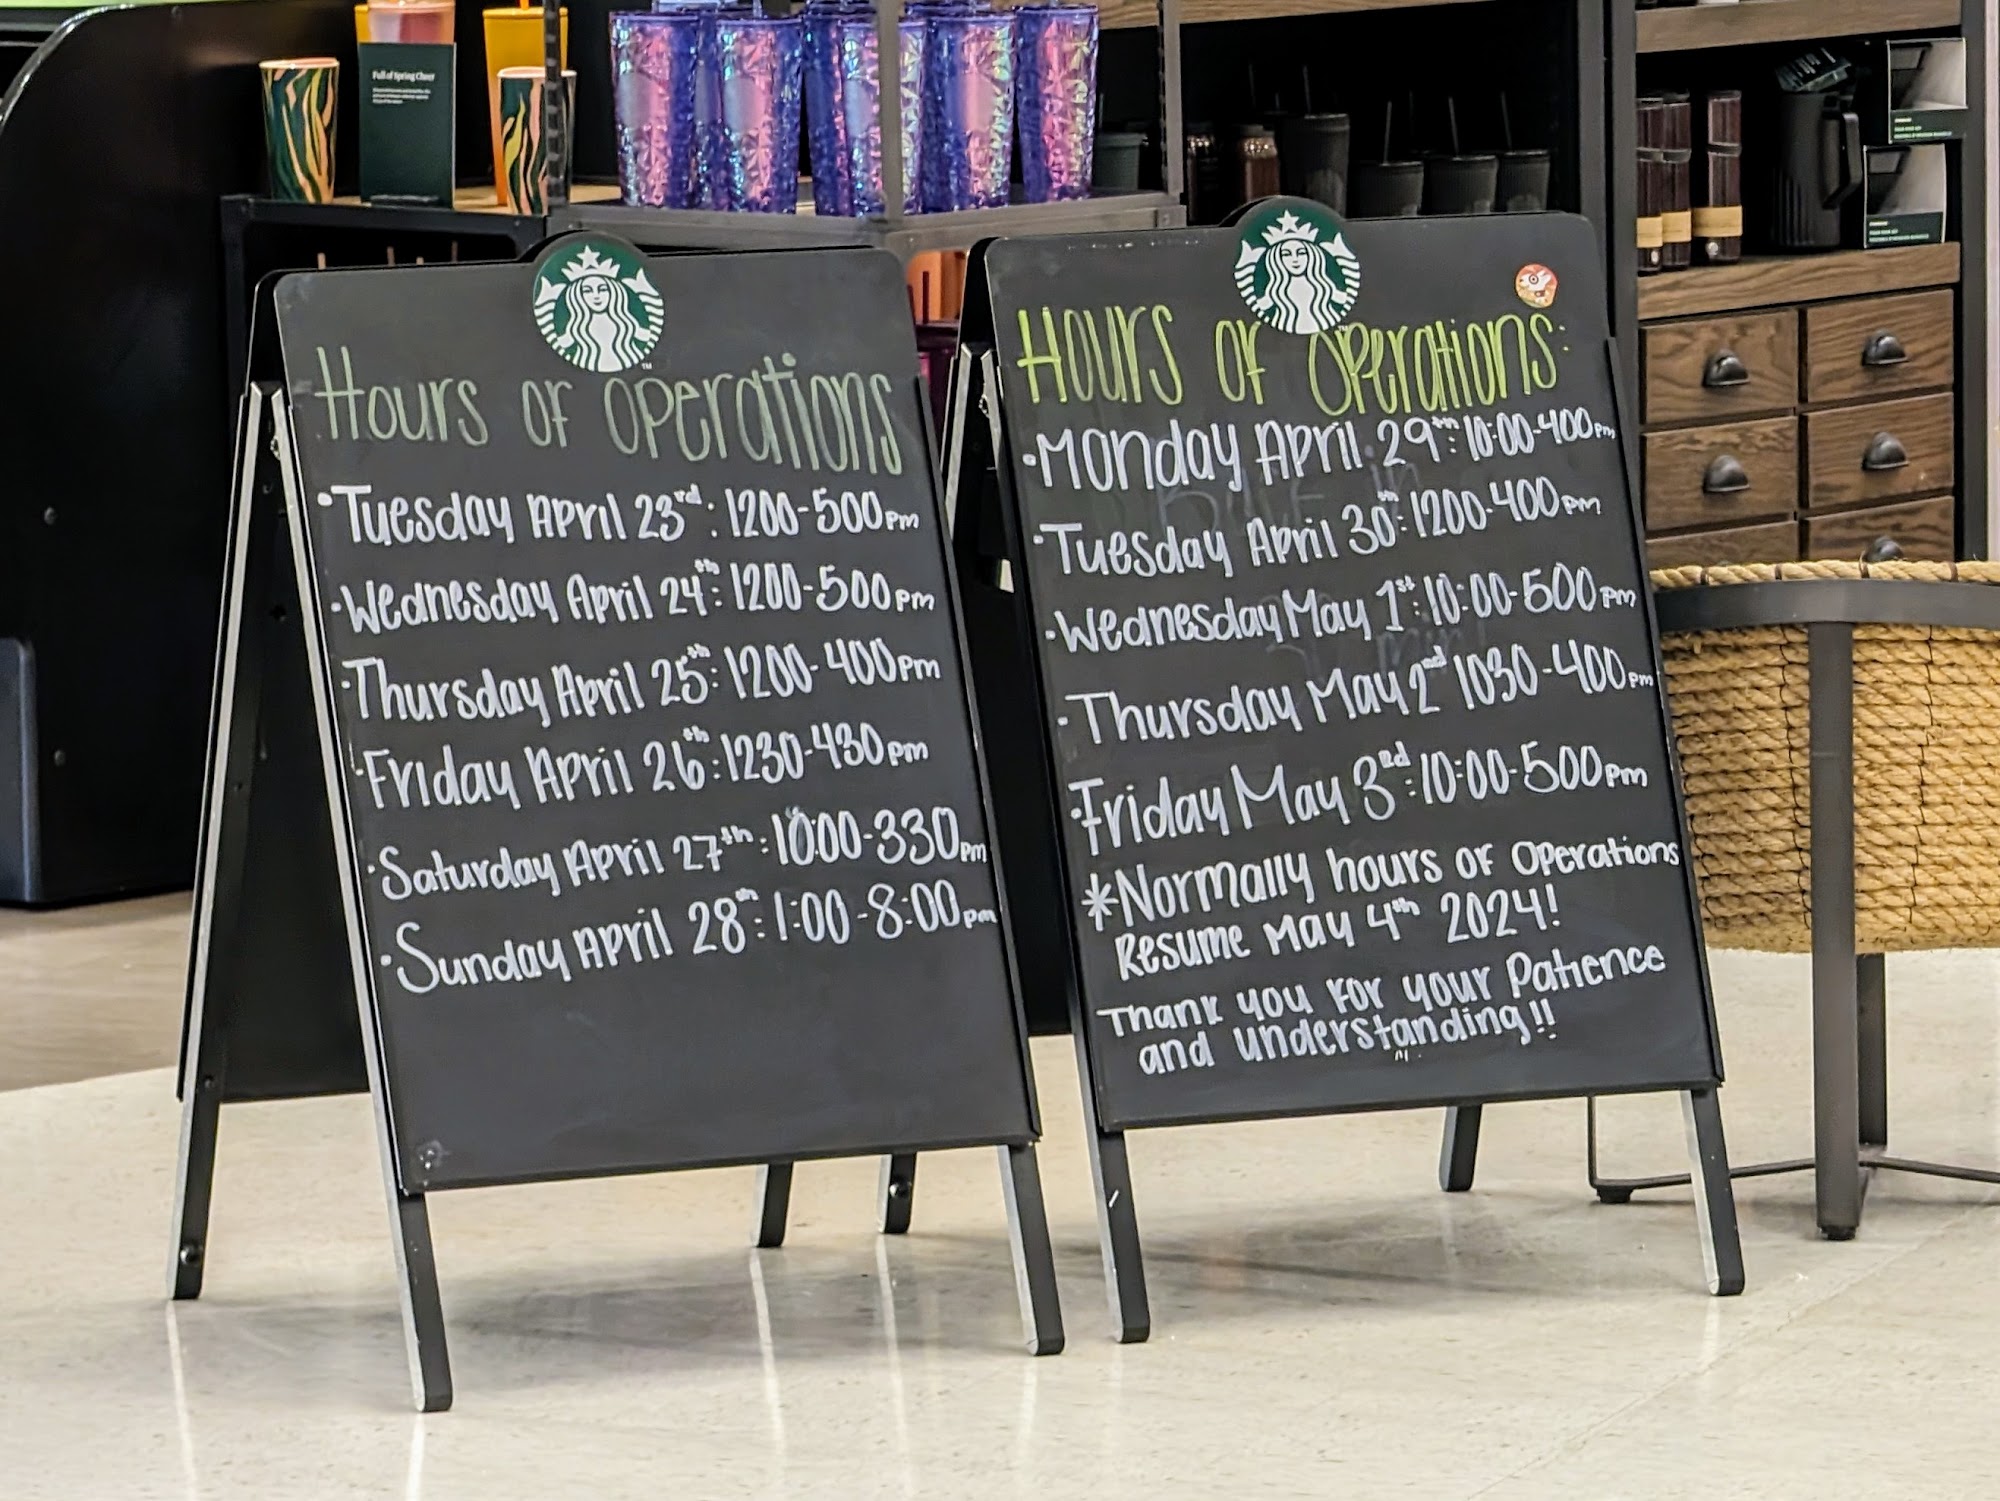 Full of Spring Cheer
Hours of Operations
• Tuesday April 23rd: 1200-500pm
• Wednesday April 24th: 1200-500pm
• Thursday April 25th: 1200-400pm
• Friday April 26th: 1230-430pm
• Saturday April 27th: 10:00-330pm
• Sunday April 28th: 1:00-8:00pm
Hours of Operations:
• Monday April 29th: 10:00-400pm
• Tuesday April 30th: 1200-400pm
• Wednesday May 1st: 10:00-500pm
• Thursday May 2nd 1030-400pm
• Friday May 3rd: 10:00-500pm
*Normally hours of Operations
Resume May 4th 2024!
Thank you for your Patience
and understanding!!